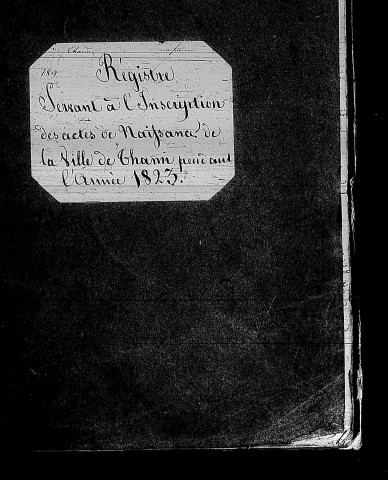 Régistre
Servant à l'Inscription
des actes de Naissance de
la Ville de Thann pendant
l'Année 1823.